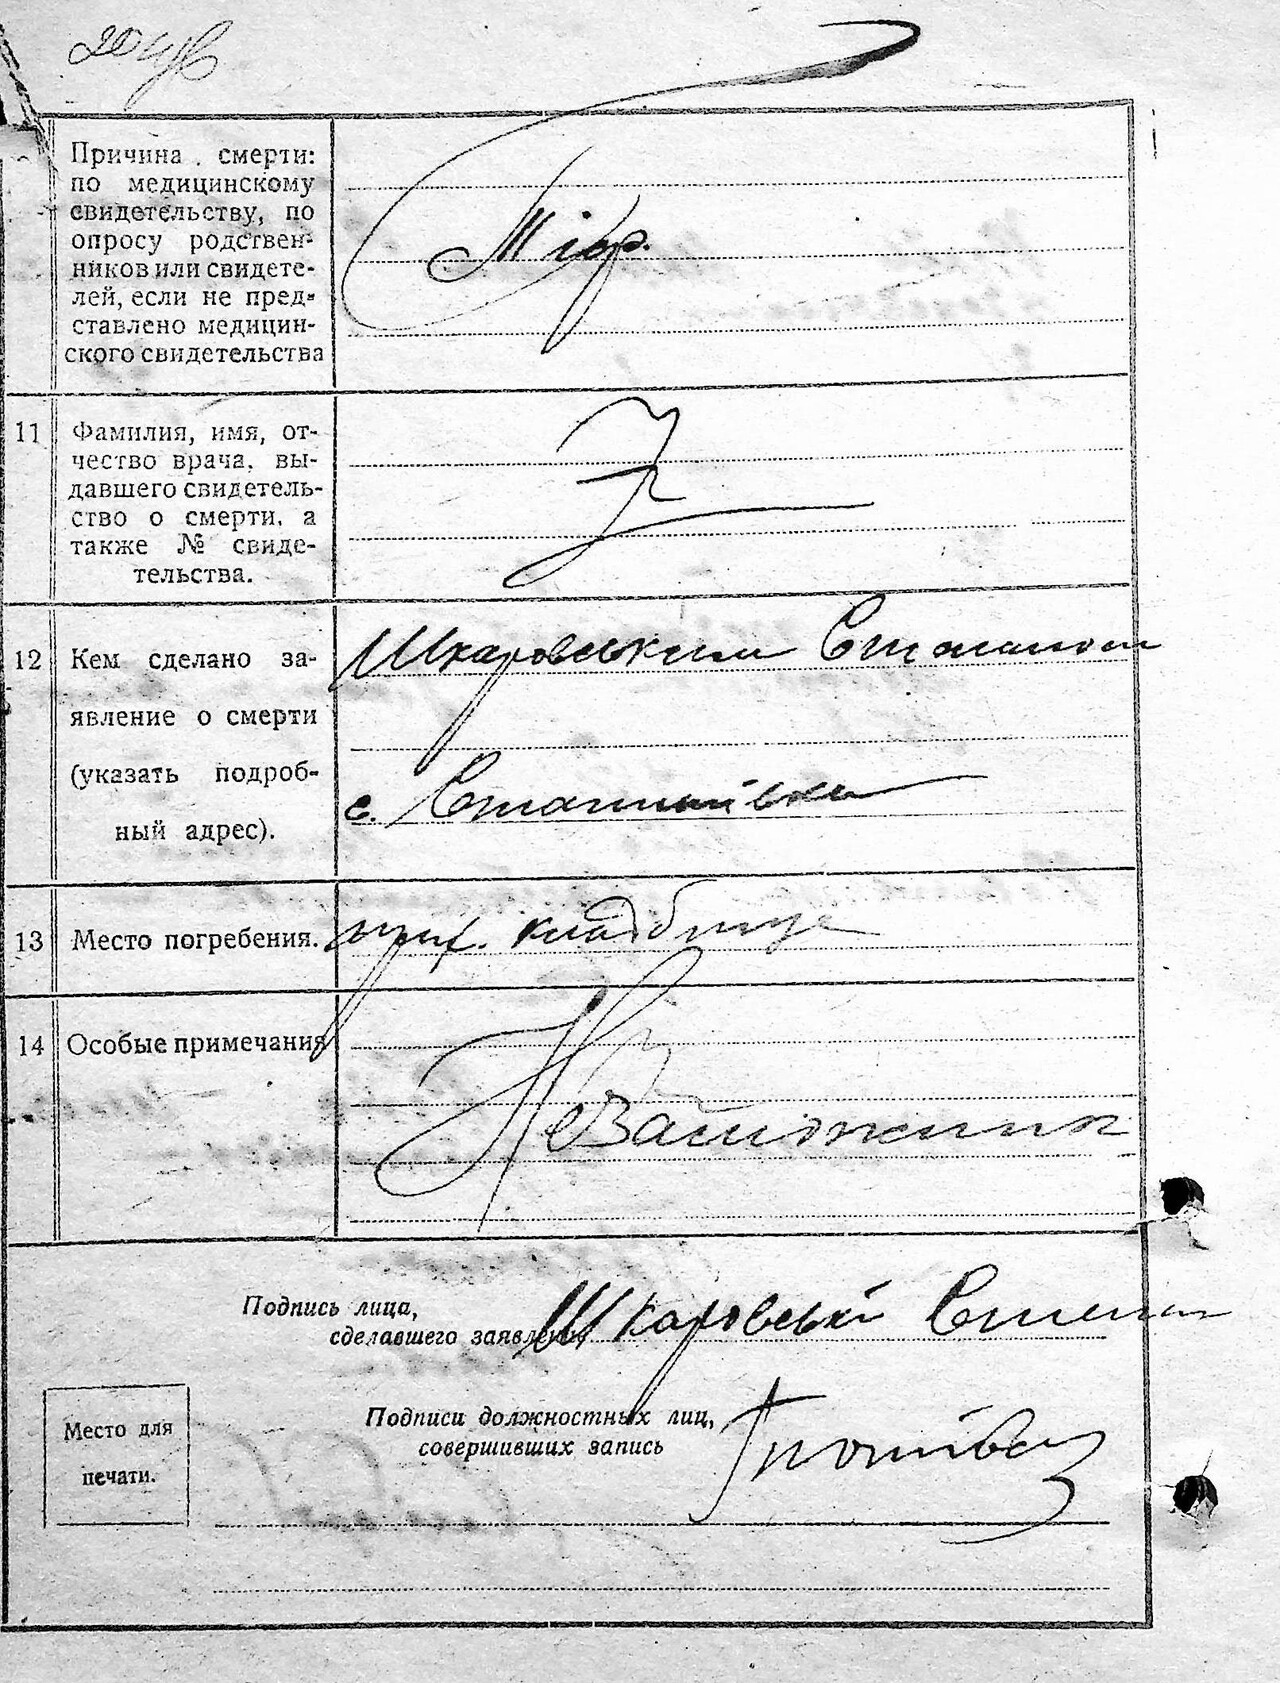 Причина смерти:
по медицинскому
свидетельству, по
опросу родствен-
ников или свидете-
лей, если не пред-
ставлено медицин-
ского свидетельства
11 Фамилия, имя, от-
чество врача, вы-
давшего свидетель-
ство о смерти, а
также № свиде-
тельства.
12 Кем сделано за-
явление о смерти
(указать подроб-
ный адрес).
Шкаровським Степаном
с.
13 Место погребения.
кладбище
14 Особые примечания
Подпись лица,
сделавшего заявление
Шкаровські Степан
Подписи должностных лиц,
совершивших запись
Место для
печати.